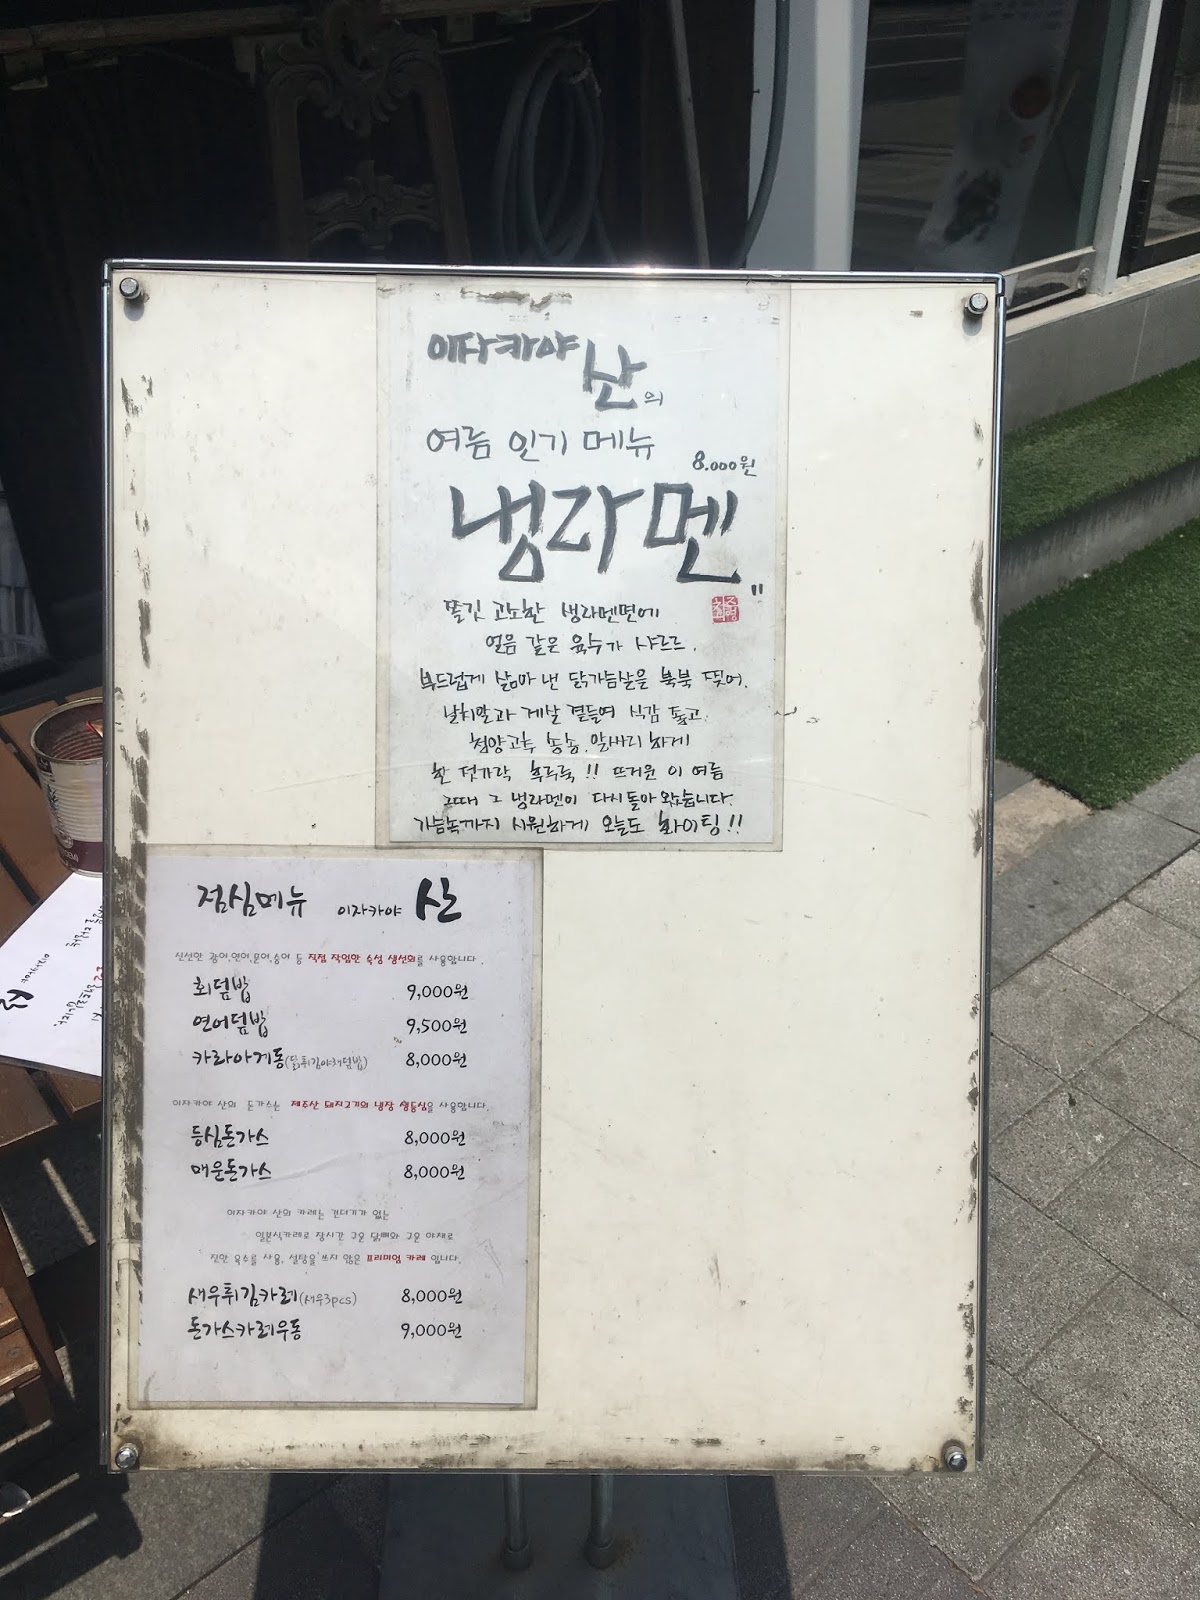 이자카야 산의
여름 인기 메뉴
8.000원
냉라멘"
쫄깃 고소한 생라멘면에
얼음 같은 육수가 샤르르.
부드럽게 삶아 낸 닭가슴살을 북북 찢어.
날치알과 게살 곁들여 식감 돋고.
청양고추 송송. 알싸리하게
한 젓가락 후루룩!! 뜨거운 이 여름
그때 그 냉라멘이 다시 돌아 왔습니다.
가슴속까지 시원하게 오늘도 화이팅!!
점심메뉴 이자카야 산
신선한 광어,연어,문어,숭어 등 직접 작업한 숙성 생선회를 사용합니다.
회덮밥 9,000원
연어덮밥 9,500원
카라아게동(닭튀김야채덮밥) 8,000원
이자카야 산의 돈가스는 제주산 돼지고기의 냉장 생등심을 사용합니다.
등심돈가스 8,000원
매운돈가스 8,000원
이자카야 산의 카레는 건더기가 없는
일본식카레로 장시간 구운 닭뼈와 구운 야채로
진한 육수를 사용, 설탕을 쓰지 않은 프리미엄 카레 입니다.
새우튀김카레(새우3pcs) 8,000원
돈가스카레우동 9,000원